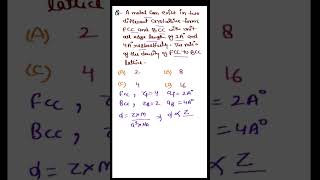 Q- A metal can exist in two
different crystalline form
FCC and BCC with unit
cell edge length of 2A° and
4A° respectively. The ratio
of the density of FCC to BCC
lattice.
(A) 2 (B) 8
(C) 4 (D) 16
Fcc, Z1=4 a1=2A°
Bcc, Z2=2 a2=4A°
d = Z×M / a³×NA d ∝ Z
lattice
(A) 2
(C) 4
Fcc,
Bcc,
d=
8
16
=2A°
=4A°
Z